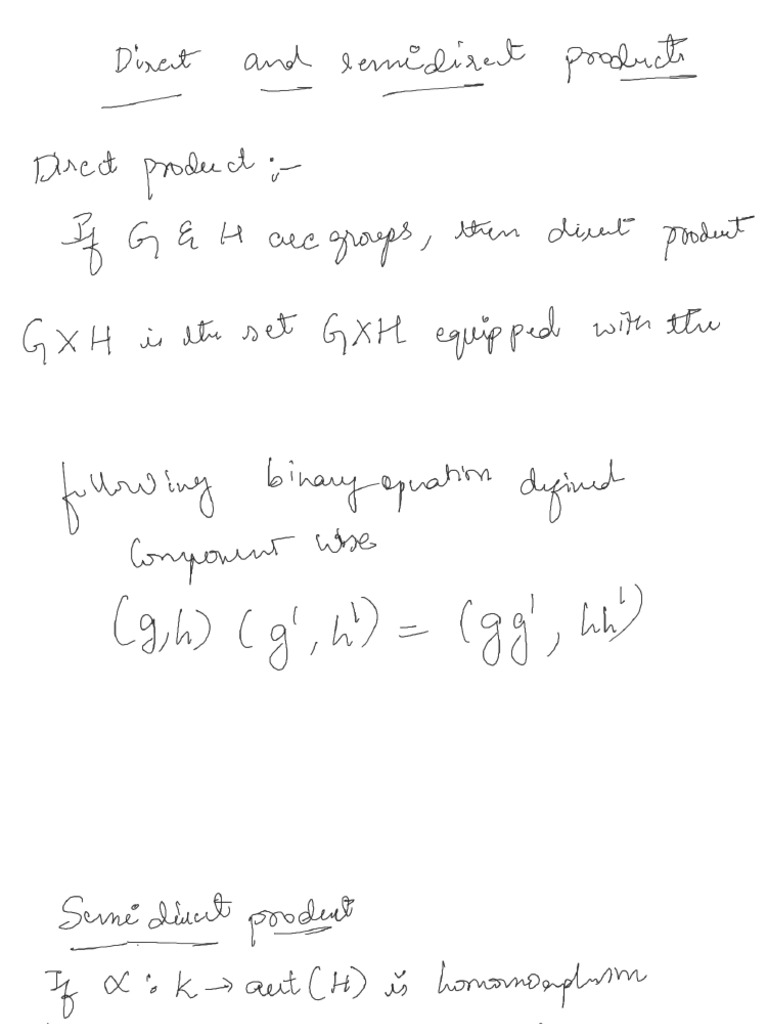 Direct and semidirect products
Direct product :-
If G & H are groups, then direct product
G×H is the set G×H equipped with the
following binary equation defined
Component wise
(g,h) (g', h') = (gg', hh')
Semi direct product
If α : k → aut(H) is homomorphism